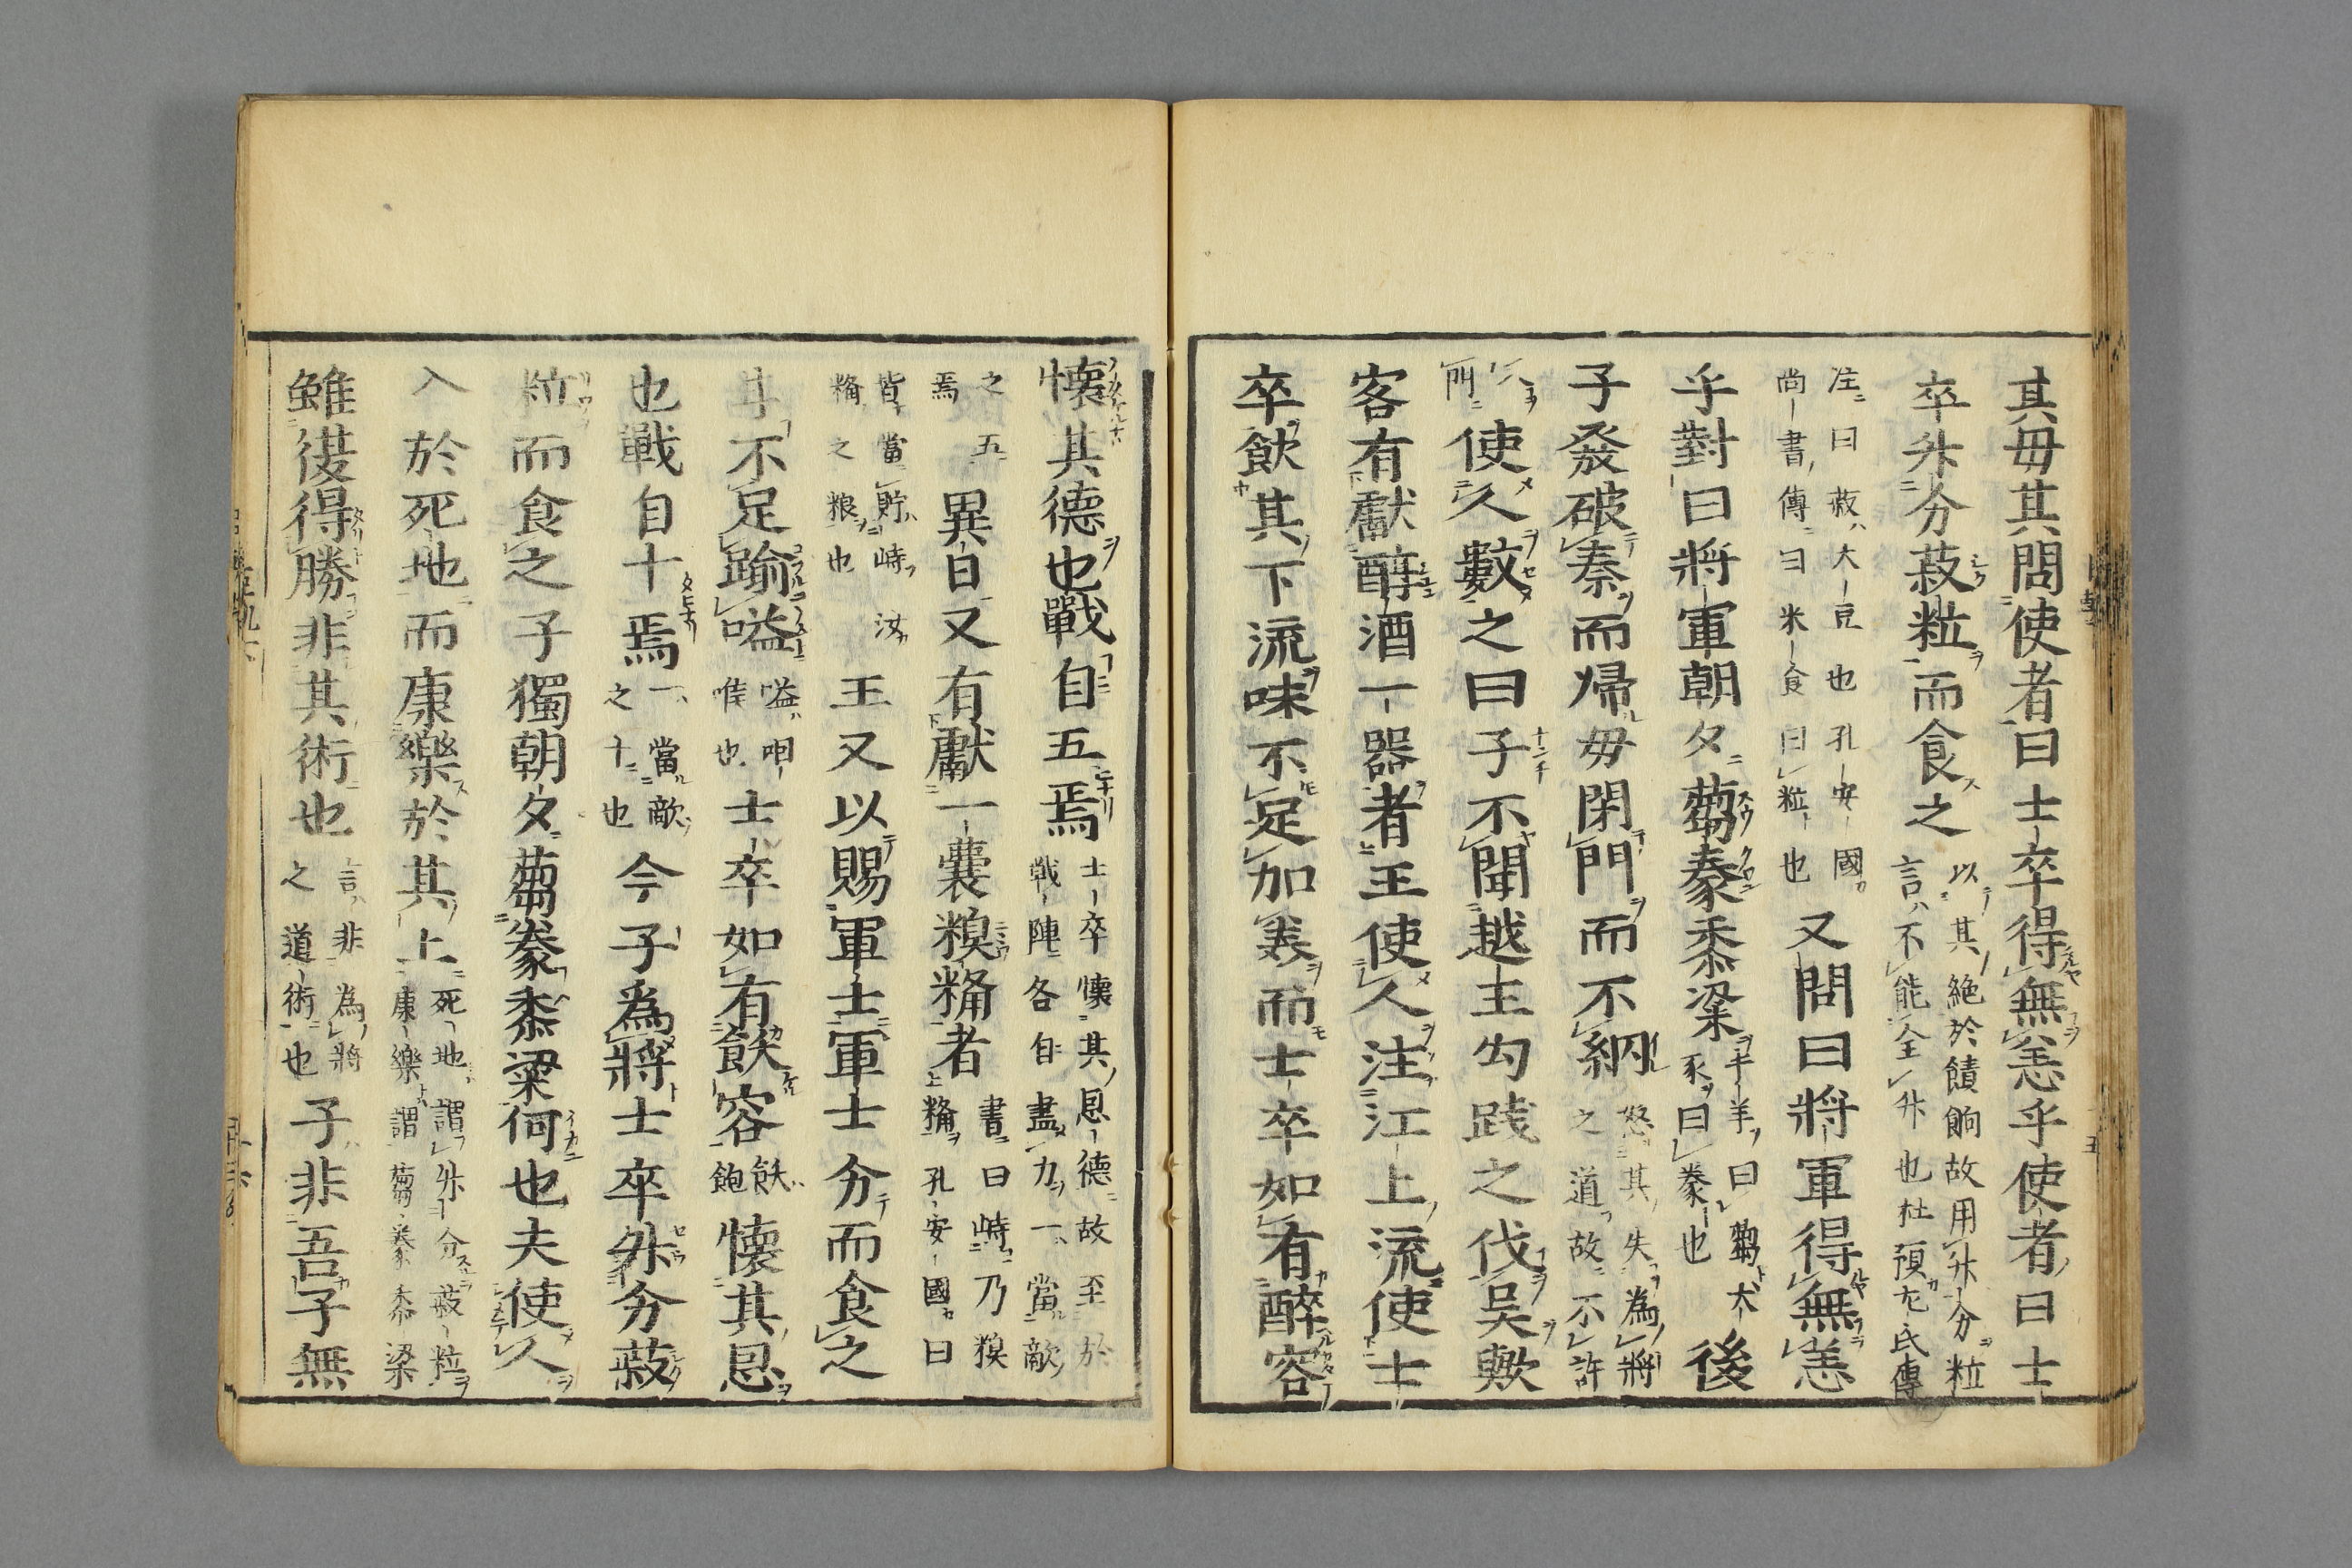 其毋其問使者曰士卒得無恙乎使者曰士
卒升分菽粒而食之以其絶於饋餉故用升分粒
言不能全升也杜預左氏傳
注曰菽大豆也孔安國
尚書傳曰米食曰粒也又問曰將軍得無恙
乎對曰將軍朝夕蒭豢黍梁牛羊曰蒭犬
豕曰豢也後
子發破秦而帰毋閉門而不納怒其失為將
之道故不許
入
門使人數之曰子不聞越王勾践之伐吳歟
客有獻醇酒一器者王使人注江上流使士
卒飲其下流味不足加羙而士卒如有醉容
懷其德也戰自五焉士卒懐其恩德故至於
戦陣各自盡力一當敵
之五
焉異日又有獻一囊糗糒者書曰峙乃糗
糒孔安國曰
皆當貯峙汝
糒之粮也王又以賜軍士軍士分而食之
甘不足踰嗌嗌咽
喉也士卒如有飫容飫
飽懐其恩
也戰自十焉一當敵
之十也今子為將士卒升分菽
粒而食之子獨朝夕蒭豢黍粱何也夫使人
入於死地而康樂於其上死地謂升分菽粒
康樂謂蒭豢黍梁
雖復得勝非其術也言非為將
之道術也子非吾子無